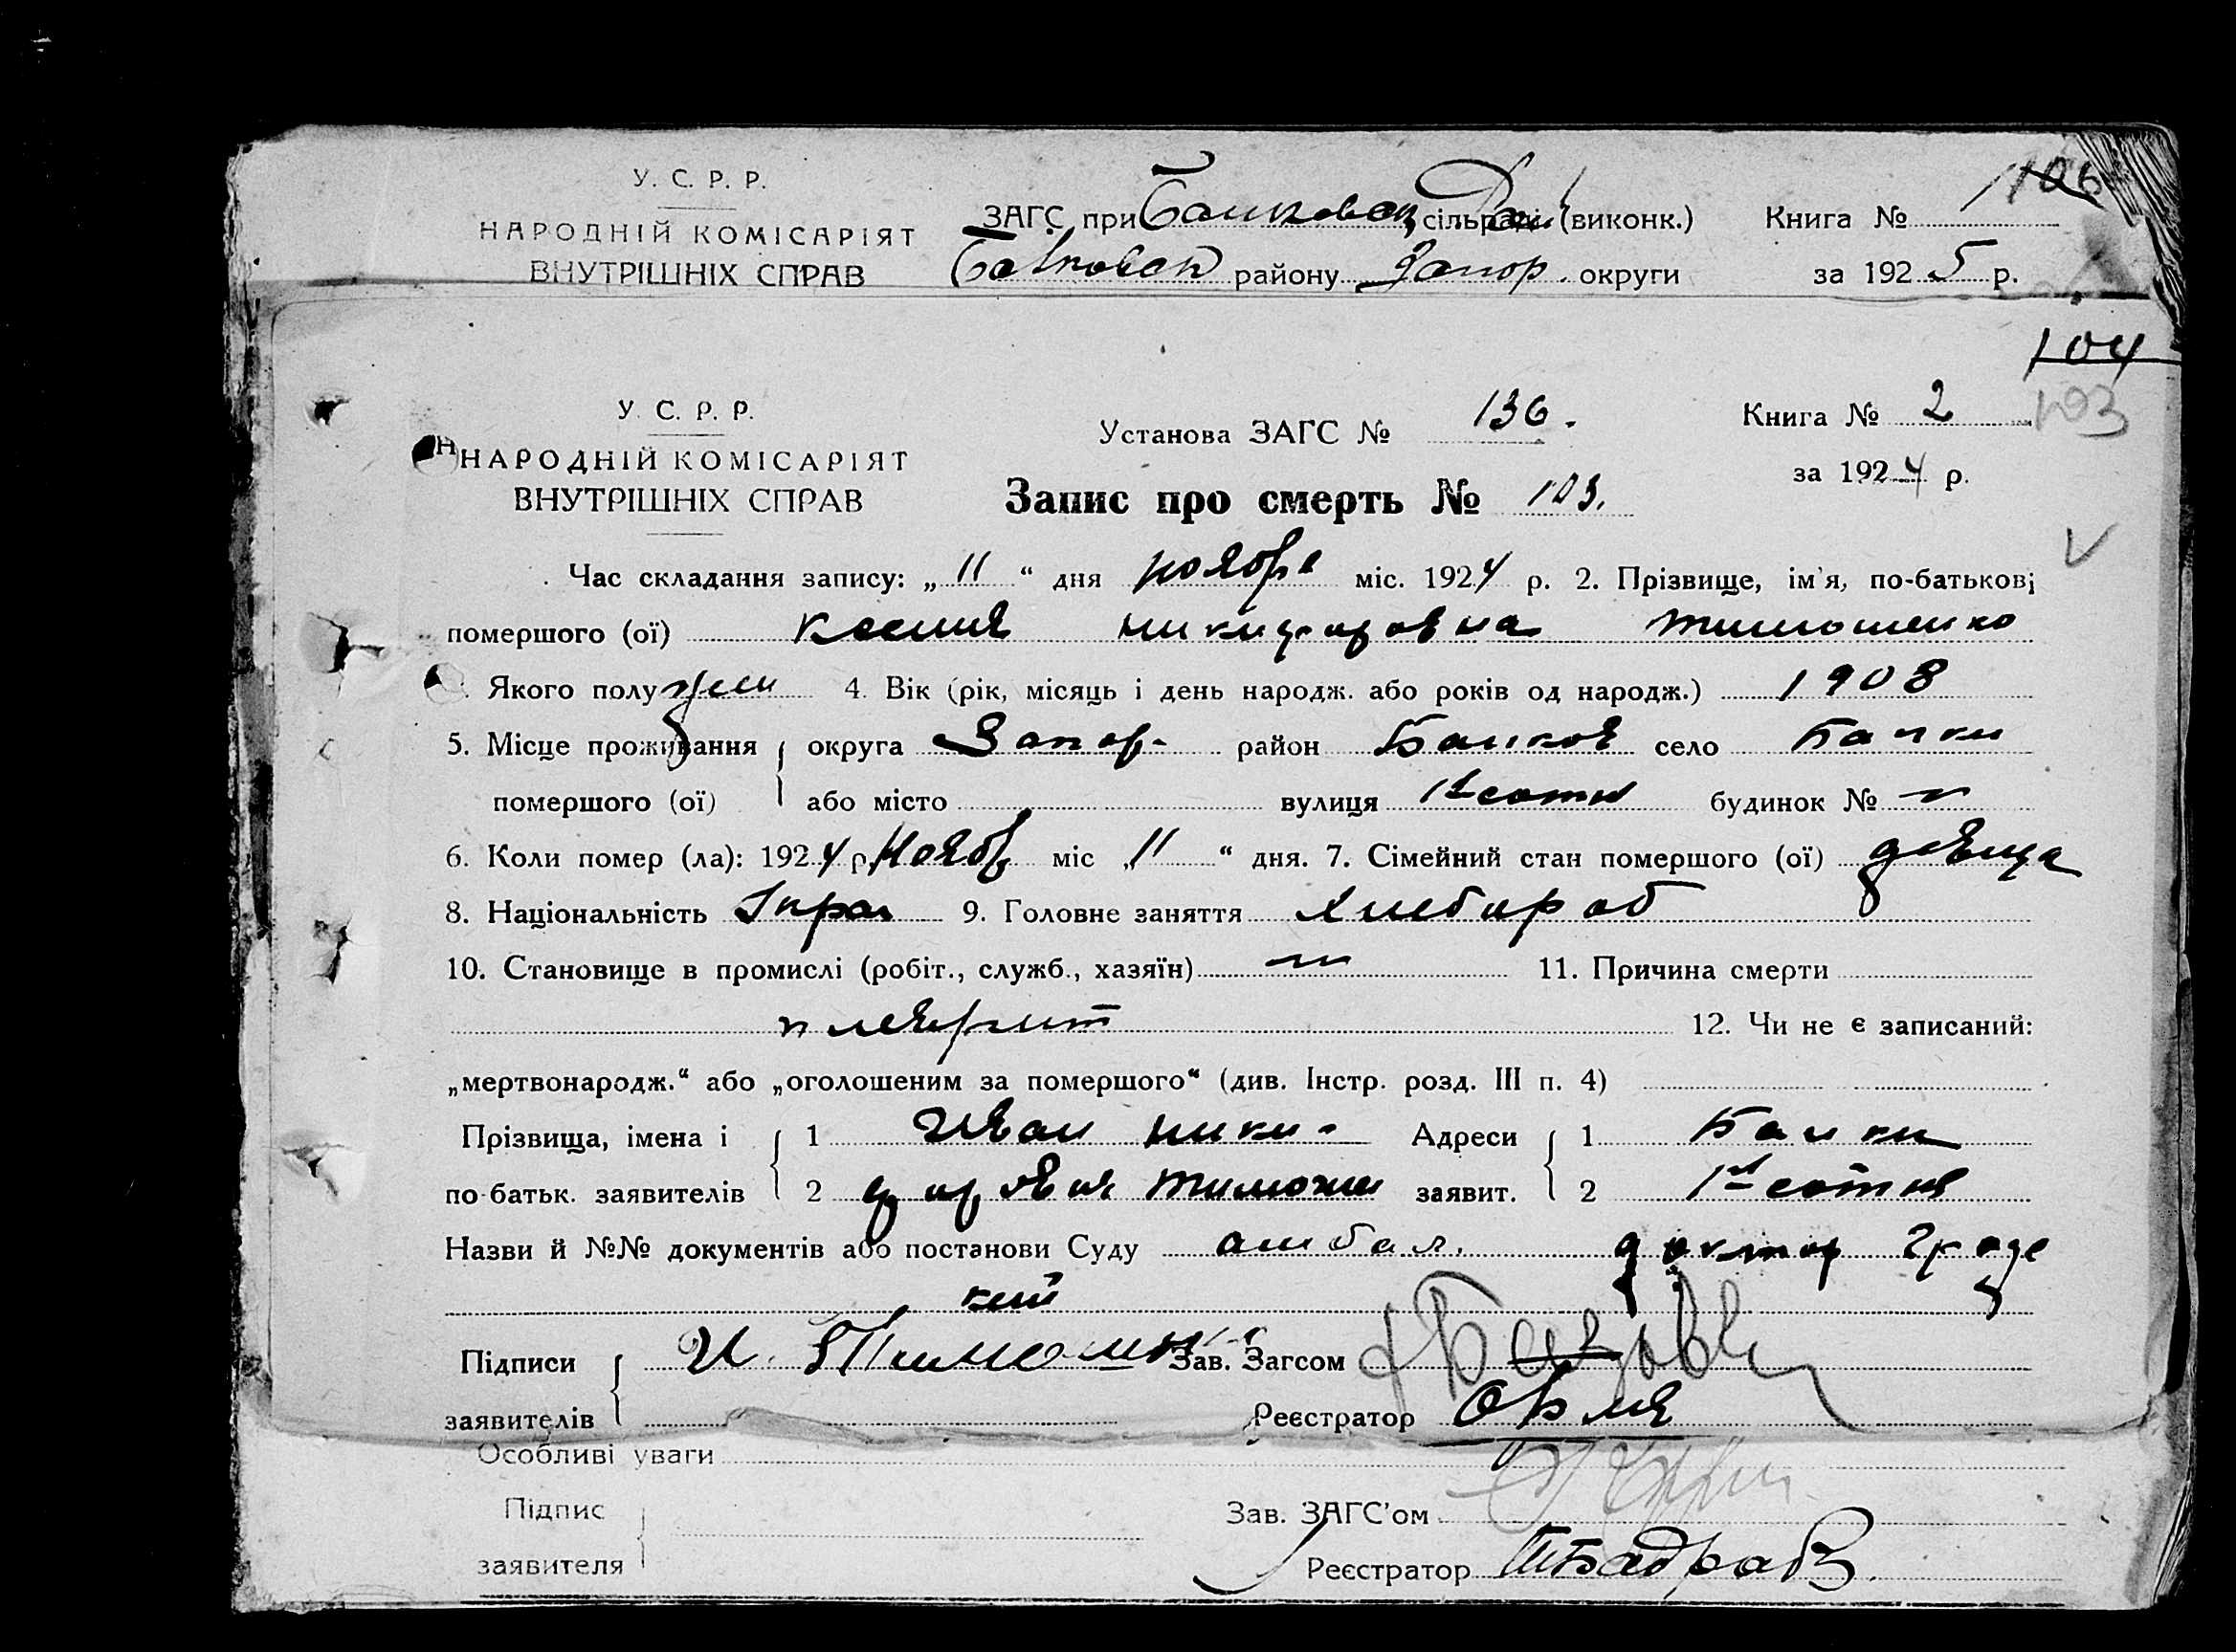 106
У. С. Р. Р.
НАРОДНІЙ КОМІСАРІЯТ
ВНУТРІШНІХ СПРАВ
ЗАГС при сільраді (виконк.) Книга №
району Запор. округи за 1925 р.
104
103
У. С. Р. Р.
НАРОДНІЙ КОМІСАРІЯТ
ВНУТРІШНІХ СПРАВ
Установа ЗАГС № 136. Книга № 2
Запис про смерть № 103. за 1924 р.
Час складання запису: „11“ дня ноября міс. 1924 р. 2. Прізвище, ім'я, по-батькові
помершого (ої) Ксения Никифоровна Тимошенко
Якого полу жен 4. Вік (рік, місяць і день народж. або років од народж.) 1908
5. Місце проживання округа Запор. район Балков село Балки
помершого (ої) або місто вулиця 1я сотня будинок №
6. Коли помер (ла): 1924 р. Ноябр міс „11“ дня. 7. Сімейний стан помершого (ої) девица
8. Національність Украи 9. Головне заняття Хлебороб
10. Становище в промислі (робіт., служб., хазяїн) 11. Причина смерти
плеврит 12. Чи не є записаний:
„мертвонародж.“ або „оголошеним за помершого“ (див. Інстр. розд. III п. 4)
Прізвища, імена і 1 Иван Ники- Адреси 1 Балки
по-батьк. заявителів 2 форович Тимоше заявит. 2 1я сотня
Назви й №№ документів або постанови Суду амбол. доктор Гродс
кий
Підписи И. Тимошенко Зав. Загсом
заявителів Реєстратор
Особливі уваги
Підпис Зав. ЗАГС'ом
заявителя Реєстратор